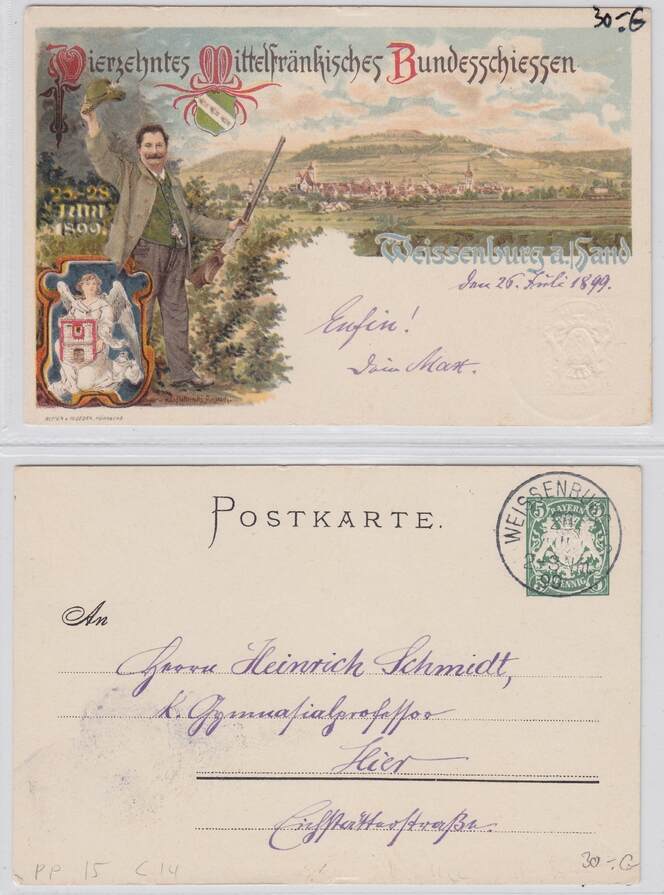 30.-G
Vierzehntes Mittelfränkisches Bundesschiessen
25.-28
1899
Weissenburg a./Sand
den 26. Juli 1899.
Enfin!
Dein Max.
POSTKARTE.
WEISSENBU
5 5
BAYERN
PFENNIG
An
Herrn Heinrich Schmidt,
K. Gymnasialprofessor
Hier
Eichstätterstraße.
PP 15 C14
30.-G